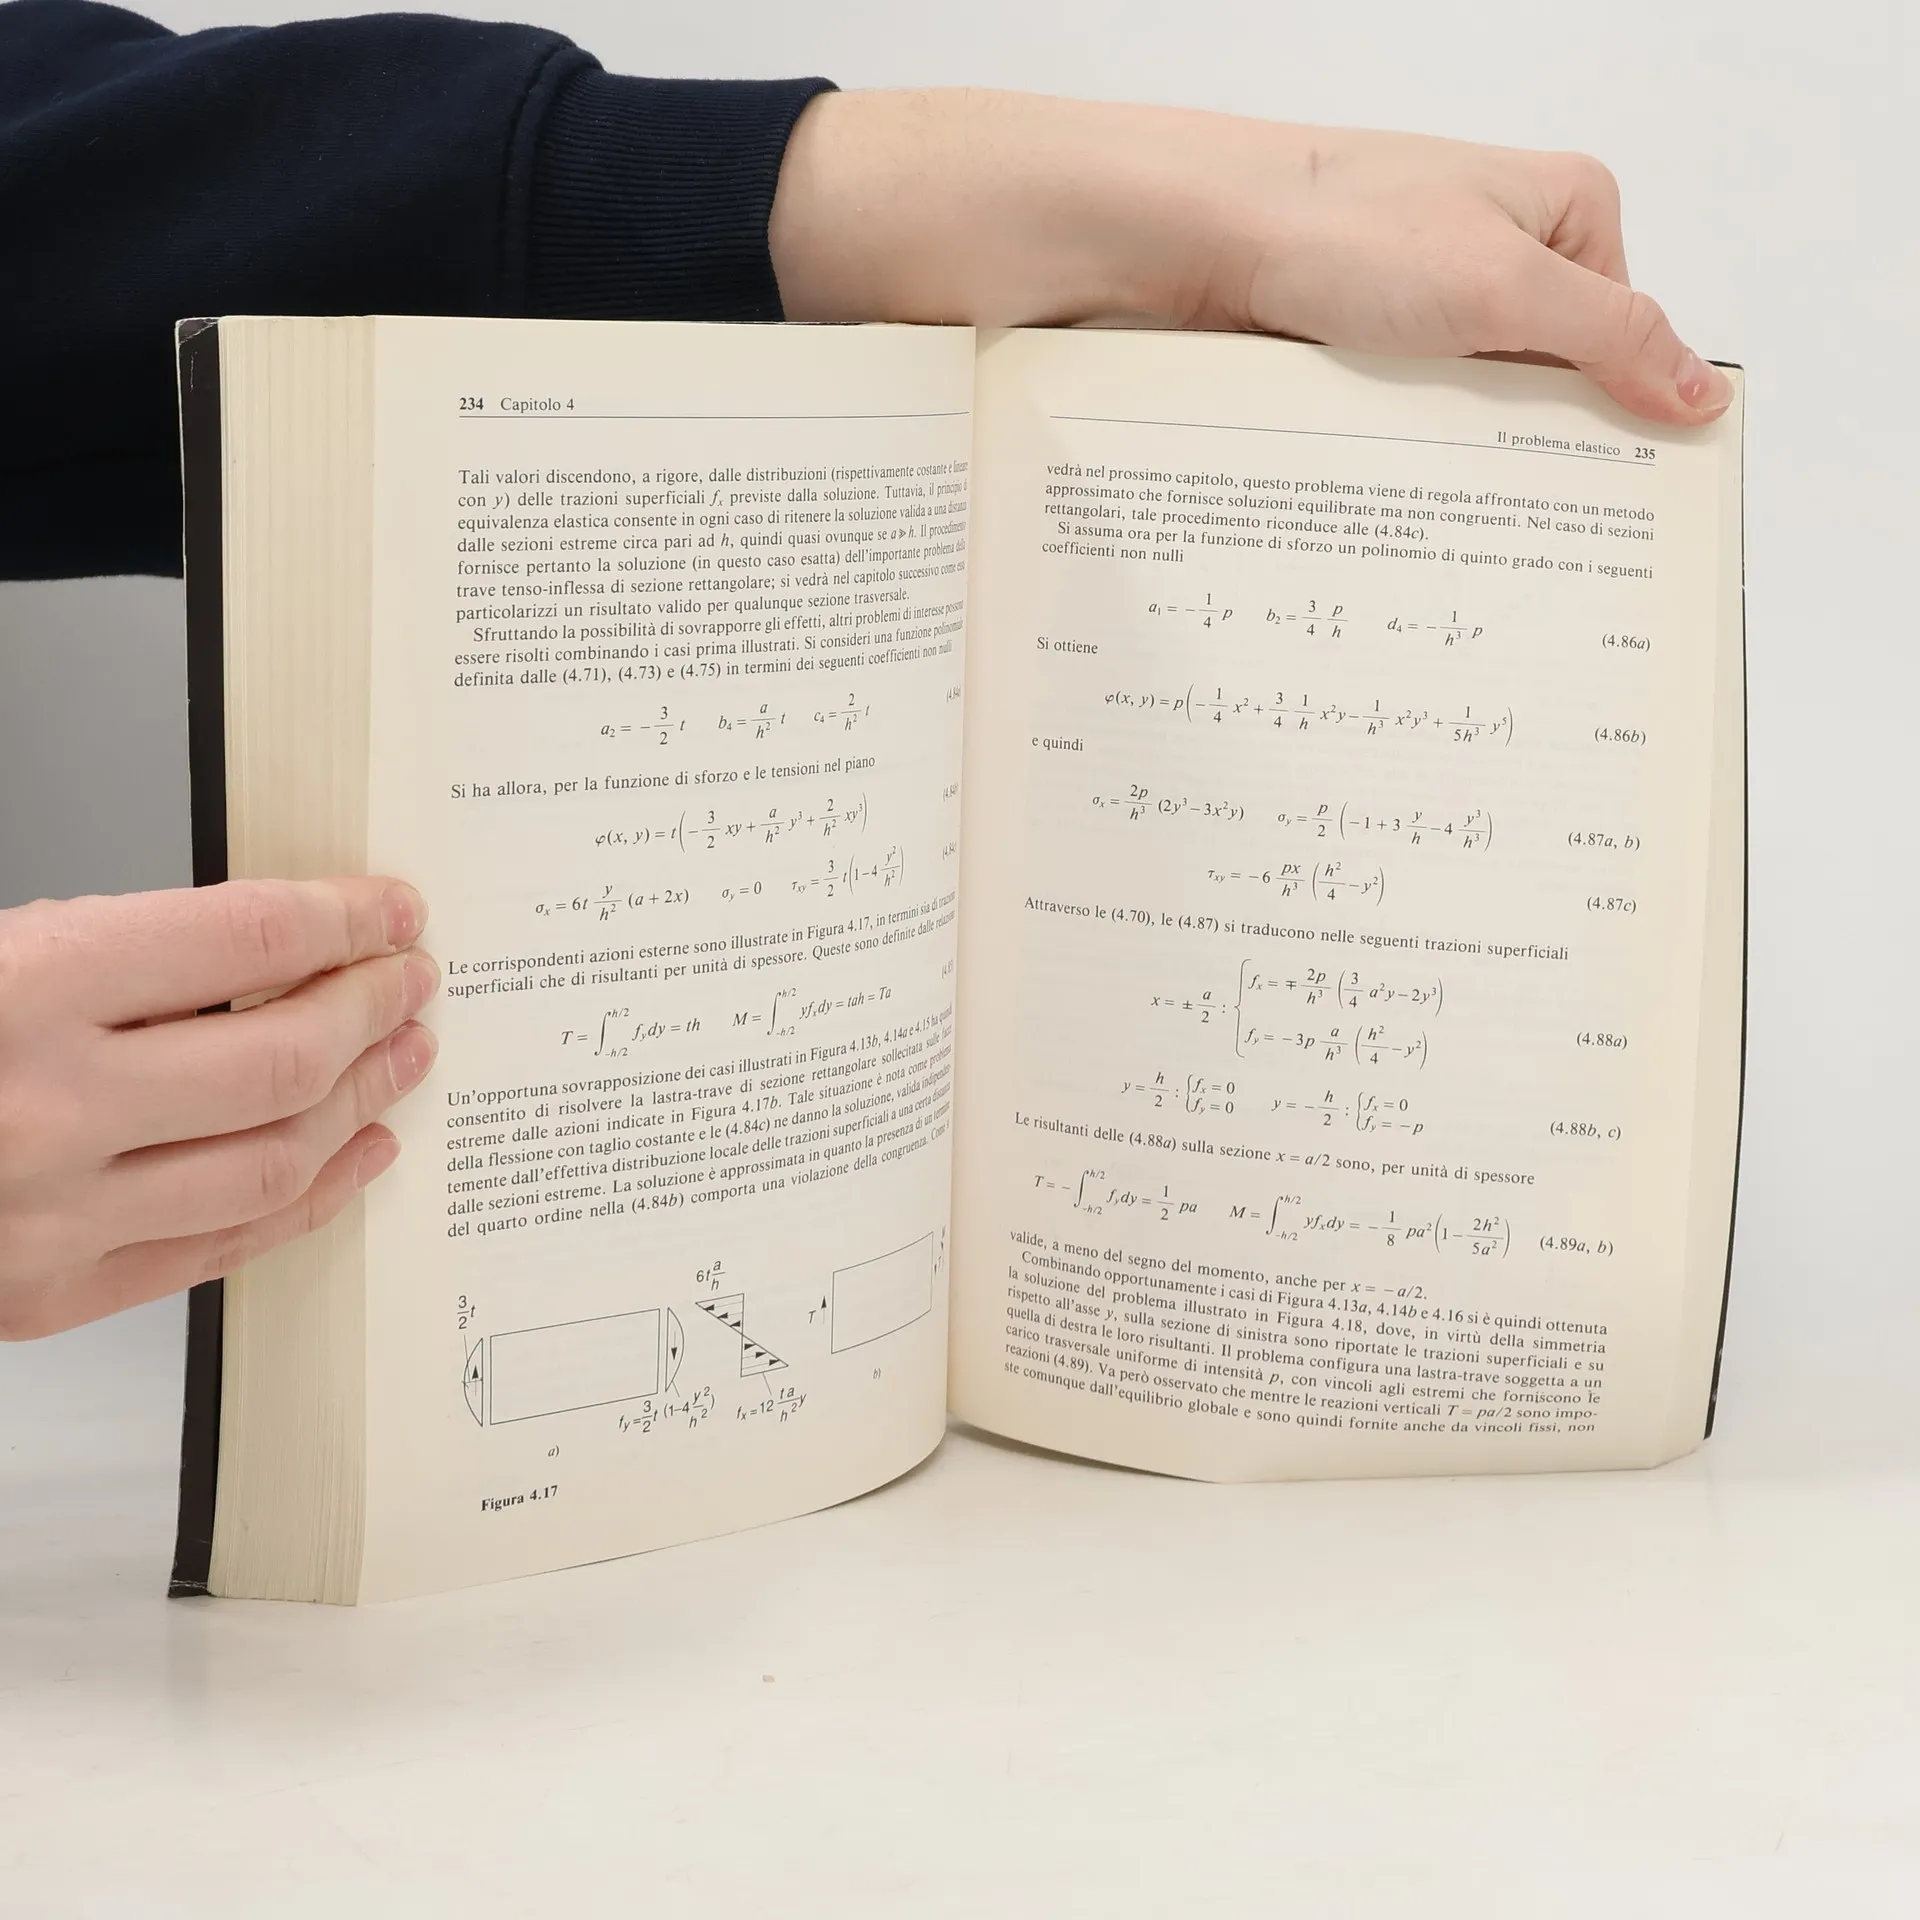 234 Capitolo 4
Tali valori discendono, a rigore, dalle distribuzioni (rispettivamente costante e lineare
con y) delle trazioni superficiali fₓ previste dalla soluzione. Tuttavia, il principio di
equivalenza elastica consente in ogni caso di ritenere la soluzione valida a una distanza
dalle sezioni estreme circa pari ad h, quindi quasi ovunque se a≫h. Il procedimento
fornisce pertanto la soluzione (in questo caso esatta) dell'importante problema della
trave tenso-inflessa di sezione rettangolare; si vedrà nel capitolo successivo come essa
particolarizzi un risultato valido per qualunque sezione trasversale.
Sfruttando la possibilità di sovrapporre gli effetti, altri problemi di interesse possono
essere risolti combinando i casi prima illustrati. Si consideri una funzione polinomiale
definita dalle (4.71), (4.73) e (4.75) in termini dei seguenti coefficienti non nulli
a₂ = − 3/2 t b₄ = a/h² t c₄ = 2/h² t (4.84a)
Si ha allora, per la funzione di sforzo e le tensioni nel piano
φ(x, y) = t(− 3/2 xy + a/h² y³ + 2/h² xy³) (4.84b)
σₓ = 6t y/h² (a + 2x) σᵧ = 0 τₓᵧ = 3/2 t(1−4 y²/h²) (4.84c)
Le corrispondenti azioni esterne sono illustrate in Figura 4.17, in termini sia di trazioni
superficiali che di risultanti per unità di spessore. Queste sono definite dalle relazioni
T = ∫₋ₕ/₂^h/2 fᵧdy = th M = ∫₋ₕ/₂^h/2 yfₓdy = tah = Ta (4.85)
Un'opportuna sovrapposizione dei casi illustrati in Figura 4.13b, 4.14a e 4.15 ha quindi
consentito di risolvere la lastra-trave di sezione rettangolare sollecitata sulle facce
estreme dalle azioni indicate in Figura 4.17b. Tale situazione è nota come problema
della flessione con taglio costante e le (4.84c) ne danno la soluzione, valida indipenden-
temente dall'effettiva distribuzione locale delle trazioni superficiali a una certa distanza
dalle sezioni estreme. La soluzione è approssimata in quanto la presenza di un termine
del quarto ordine nella (4.84b) comporta una violazione della congruenza. Come si
3/2 t
6t a/h
T
fᵧ = 3/2 t (1−4 y²/h²)
fₓ = 12 ta/h² y
a)
b)
Figura 4.17
Il problema elastico 235
vedrà nel prossimo capitolo, questo problema viene di regola affrontato con un metodo
approssimato che fornisce soluzioni equilibrate ma non congruenti. Nel caso di sezioni
rettangolari, tale procedimento riconduce alle (4.84c).
Si assuma ora per la funzione di sforzo un polinomio di quinto grado con i seguenti
coefficienti non nulli
a₁ = − 1/4 p b₂ = 3/4 p/h d₄ = − 1/h³ p (4.86a)
Si ottiene
φ(x, y) = p(− 1/4 x² + 3/4 1/h x²y − 1/h³ x²y³ + 1/5h³ y⁵) (4.86b)
e quindi
σₓ = 2p/h³ (2y³ − 3x²y) σᵧ = p/2 (−1 + 3 y/h − 4 y³/h³) (4.87a, b)
τₓᵧ = −6 px/h³ (h²/4 − y²) (4.87c)
Attraverso le (4.70), le (4.87) si traducono nelle seguenti trazioni superficiali
x = ± a/2 : { fₓ = ∓ 2p/h³ (3/4 a²y − 2y³)
fᵧ = −3p a/h³ (h²/4 − y²) (4.88a)
y = h/2 : { fₓ = 0 fᵧ = 0 y = − h/2 : { fₓ = 0 fᵧ = −p (4.88b, c)
Le risultanti delle (4.88a) sulla sezione x = a/2 sono, per unità di spessore
T = − ∫₋ₕ/₂^h/2 fᵧdy = 1/2 pa M = ∫₋ₕ/₂^h/2 yfₓdy = − 1/8 pa²(1 − 2h²/5a²) (4.89a, b)
valide, a meno del segno del momento, anche per x = −a/2.
Combinando opportunamente i casi di Figura 4.13a, 4.14b e 4.16 si è quindi ottenuta
la soluzione del problema illustrato in Figura 4.18, dove, in virtù della simmetria
rispetto all'asse y, sulla sezione di sinistra sono riportate le trazioni superficiali e su
quella di destra le loro risultanti. Il problema configura una lastra-trave soggetta a un
carico trasversale uniforme di intensità p, con vincoli agli estremi che forniscono le
reazioni (4.89). Va però osservato che mentre le reazioni verticali T = pa/2 sono impo-
ste comunque dall'equilibrio globale e sono quindi fornite anche da vincoli fissi, non